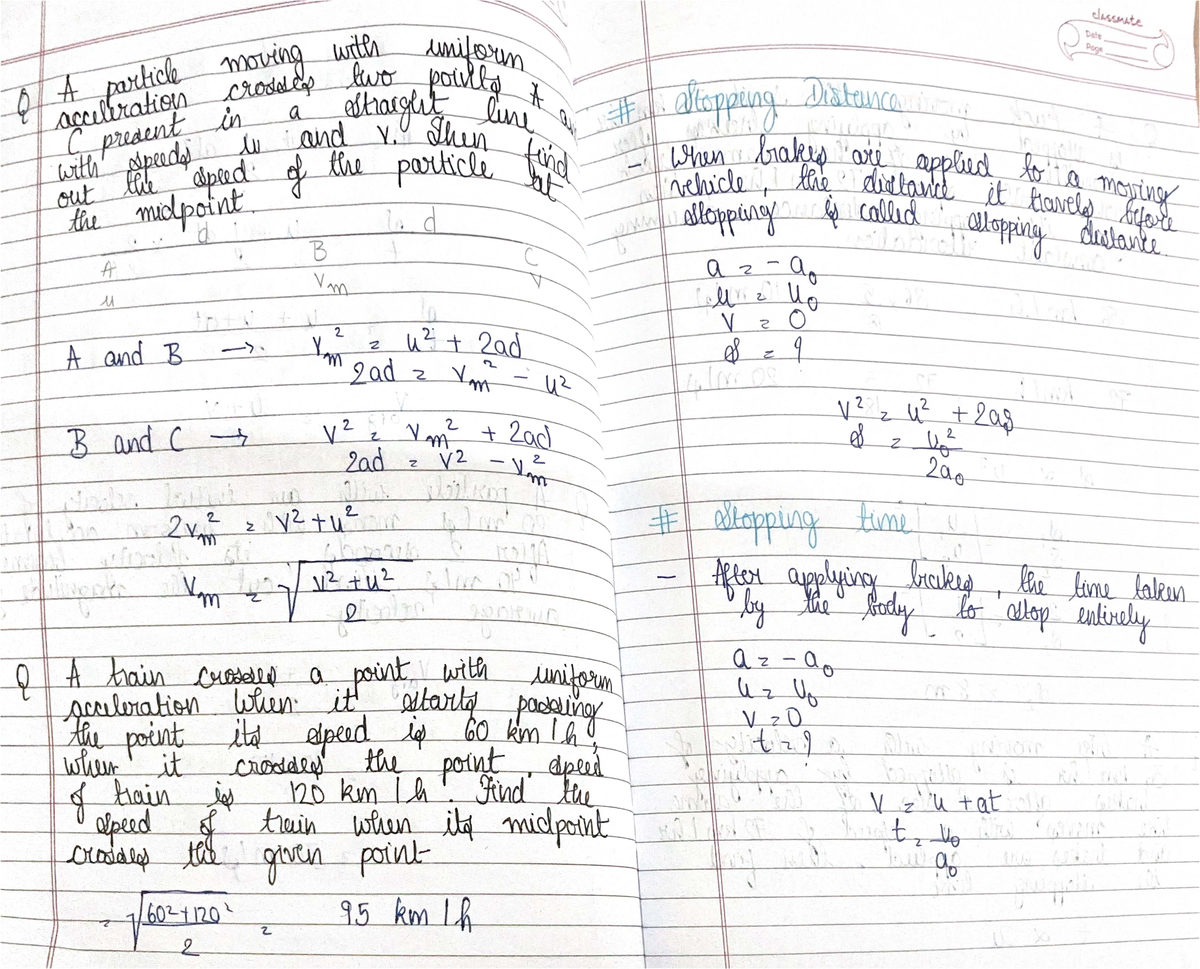 Q A particle moving with uniform
acceleration crosses two points A
C present in a straight line
with speeds u and v. Then find
out the speed of the particle at
the midpoint.
A B C
u Vm v
A and B → Vm² = u² + 2ad
2ad = Vm² - u²
B and C → V² = Vm² + 2ad
2ad = V² - Vm²
2Vm² = V² + u²
Vm = √(V² + u²/2)
Q A train crosses a point with uniform
acceleration when it starts passing
the point its speed is 60 km/h,
when it crosses the point speed
of train is 120 km/h. Find the
speed of train when its midpoint
crosses the given point
= √(60² + 120²)/2 = 95 km/h
classmate
Date
Page
# Stopping Distance
- When brakes are applied to a moving
vehicle, the distance it travels before
stopping is called stopping distance.
a = - a₀
u = u₀
v = 0
s = ?
V² = u² + 2as
s = u₀²/2a₀
# Stopping time
- After applying brakes, the time taken
by the body to stop entirely
a = - a₀
u = u₀
v = 0
t = ?
v = u + at
t = u₀/a₀